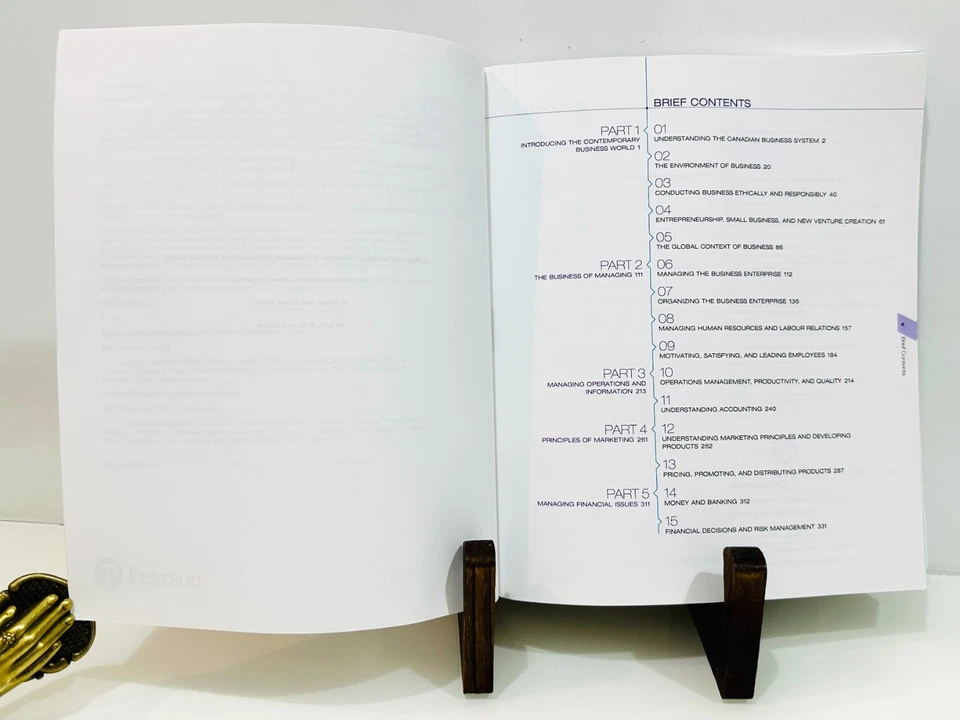 BRIEF CONTENTS
PART 1
INTRODUCING THE CONTEMPORARY
BUSINESS WORLD 1
01
UNDERSTANDING THE CANADIAN BUSINESS SYSTEM 2
02
THE ENVIRONMENT OF BUSINESS 20
03
CONDUCTING BUSINESS ETHICALLY AND RESPONSIBLY 40
04
ENTREPRENEURSHIP, SMALL BUSINESS, AND NEW VENTURE CREATION 61
05
THE GLOBAL CONTEXT OF BUSINESS 86
PART 2
THE BUSINESS OF MANAGING 111
06
MANAGING THE BUSINESS ENTERPRISE 112
07
ORGANIZING THE BUSINESS ENTERPRISE 136
08
MANAGING HUMAN RESOURCES AND LABOUR RELATIONS 157
09
MOTIVATING, SATISFYING, AND LEADING EMPLOYEES 184
PART 3
MANAGING OPERATIONS AND
INFORMATION 213
10
OPERATIONS MANAGEMENT, PRODUCTIVITY, AND QUALITY 214
11
UNDERSTANDING ACCOUNTING 240
PART 4
PRINCIPLES OF MARKETING 261
12
UNDERSTANDING MARKETING PRINCIPLES AND DEVELOPING
PRODUCTS 262
13
PRICING, PROMOTING, AND DISTRIBUTING PRODUCTS 287
PART 5
MANAGING FINANCIAL ISSUES 311
14
MONEY AND BANKING 312
15
FINANCIAL DECISIONS AND RISK MANAGEMENT 331
v
Brief Contents
Pearson